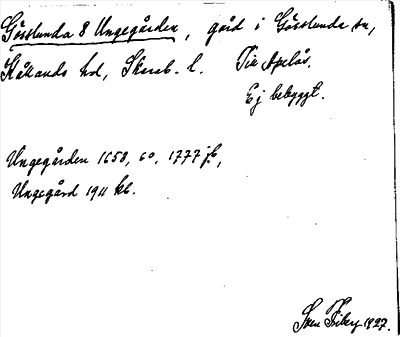 Gösslunda 8 Ungegården, gård i Gösslunda sn,
Kållands hd, Skarab. l. Till Apelås.
Ej bebyggt.
Ungegården 1658, 60, 1777 jb,
Ungegård 1911 kb.
Sven Friberg 1927.